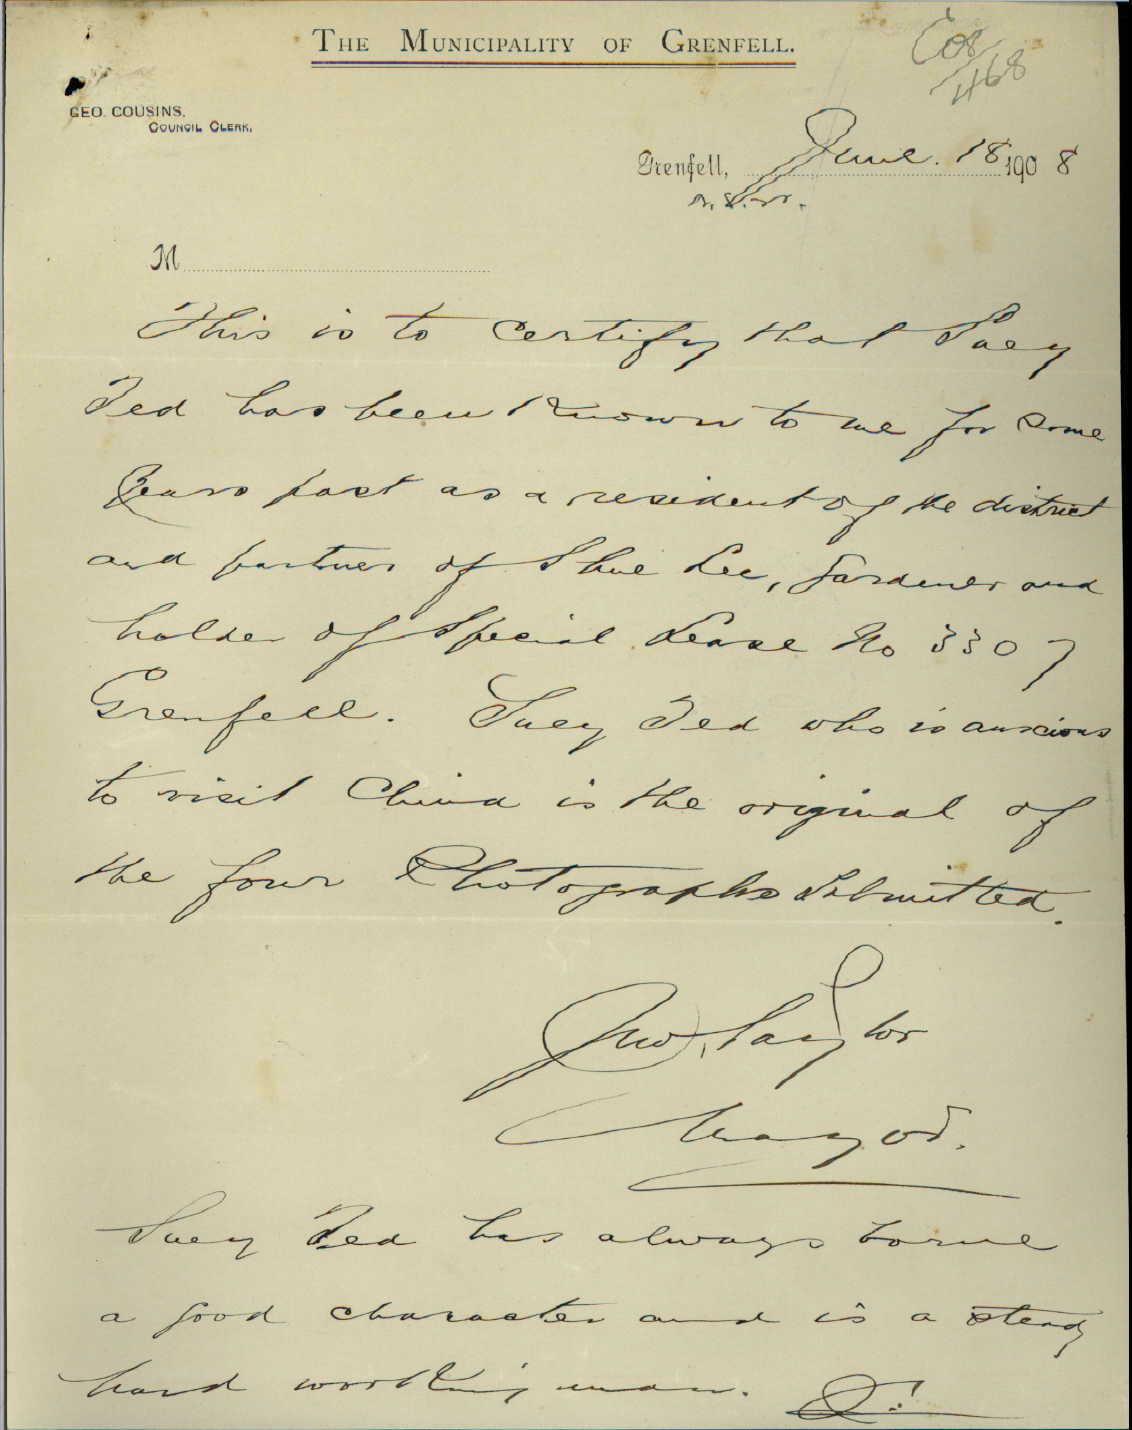 THE MUNICIPALITY OF GRENFELL.
C08
/468
GEO. COUSINS,
COUNCIL CLERK.
Grenfell, June. 18 1908
N.S.W.
M
This is to certify that Suey
Ted has been Known to me for some
years past as a resident of the district
and partner of Shue Lee, Gardener and
holder of Special Lease No 3307
Grenfell. Suey Ted who is anxious
to visit China is the original of
the four Photographs Submitted.
Taylor
Mayor.
Suey Ted has always borne
a good character and is a steady
hard working man.